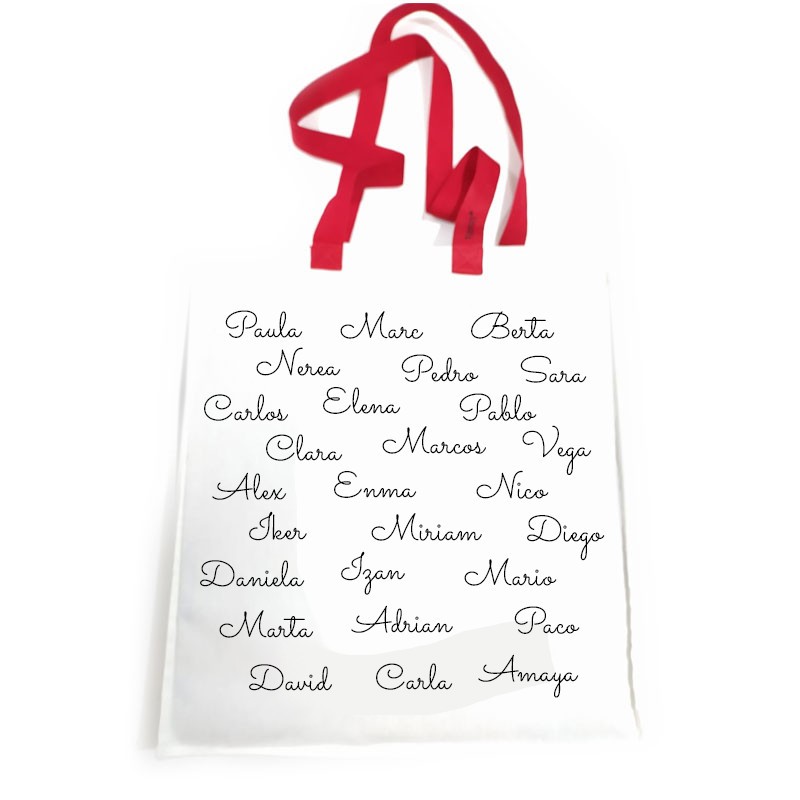 Paula Marc Berta
Nerea Pedro Sara
Carlos Elena Pablo
Clara Marcos Vega
Alex Enma Nico
Iker Miriam Diego
Daniela Izan Mario
Marta Adrian Paco
David Carla Amaya